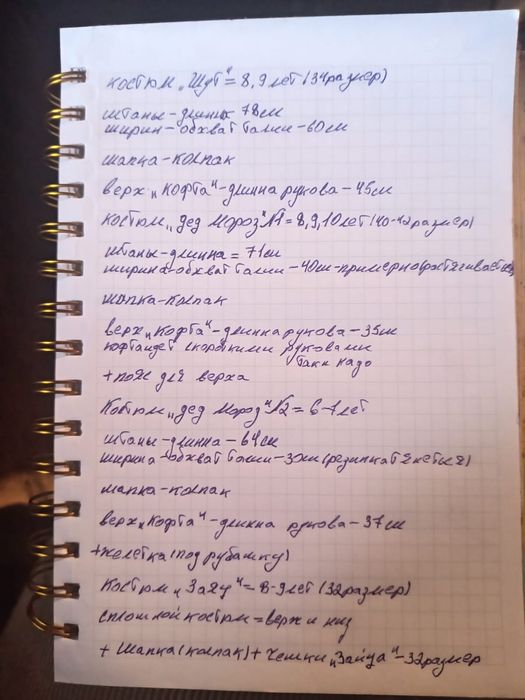 Костюм "Шут" = 8,9 лет (34 размер)
штаны-длинна 78см
ширин-обхват талии-60см
шапка-колпак
верх "Кофта"-длинна рукова-45см
Костюм "дед Мороз" №1=8,9,10 лет (40-42 размер)
штаны-длинна=71см
ширина-обхват талии-40см-примерно(растягивается)
шапка-колпак
верх "Кофта"-длинна рукова-35см
кофта идет с короткими руковами
так и надо
+пояс для верха
Костюм "дед Мороз" №2=6-7 лет
штаны-длинна-64см
ширина-обхват талии-30см(резинка тянеться)
шапка-колпак
верх "Кофта"-длинна рукова-37см
+желетка(под рубашку)
Костюм "Заяц"=8-9лет(32размер)
сплошной костюм=верх и низ
+ Шапка(колпак)+ Чешки "Зайца"-32размер